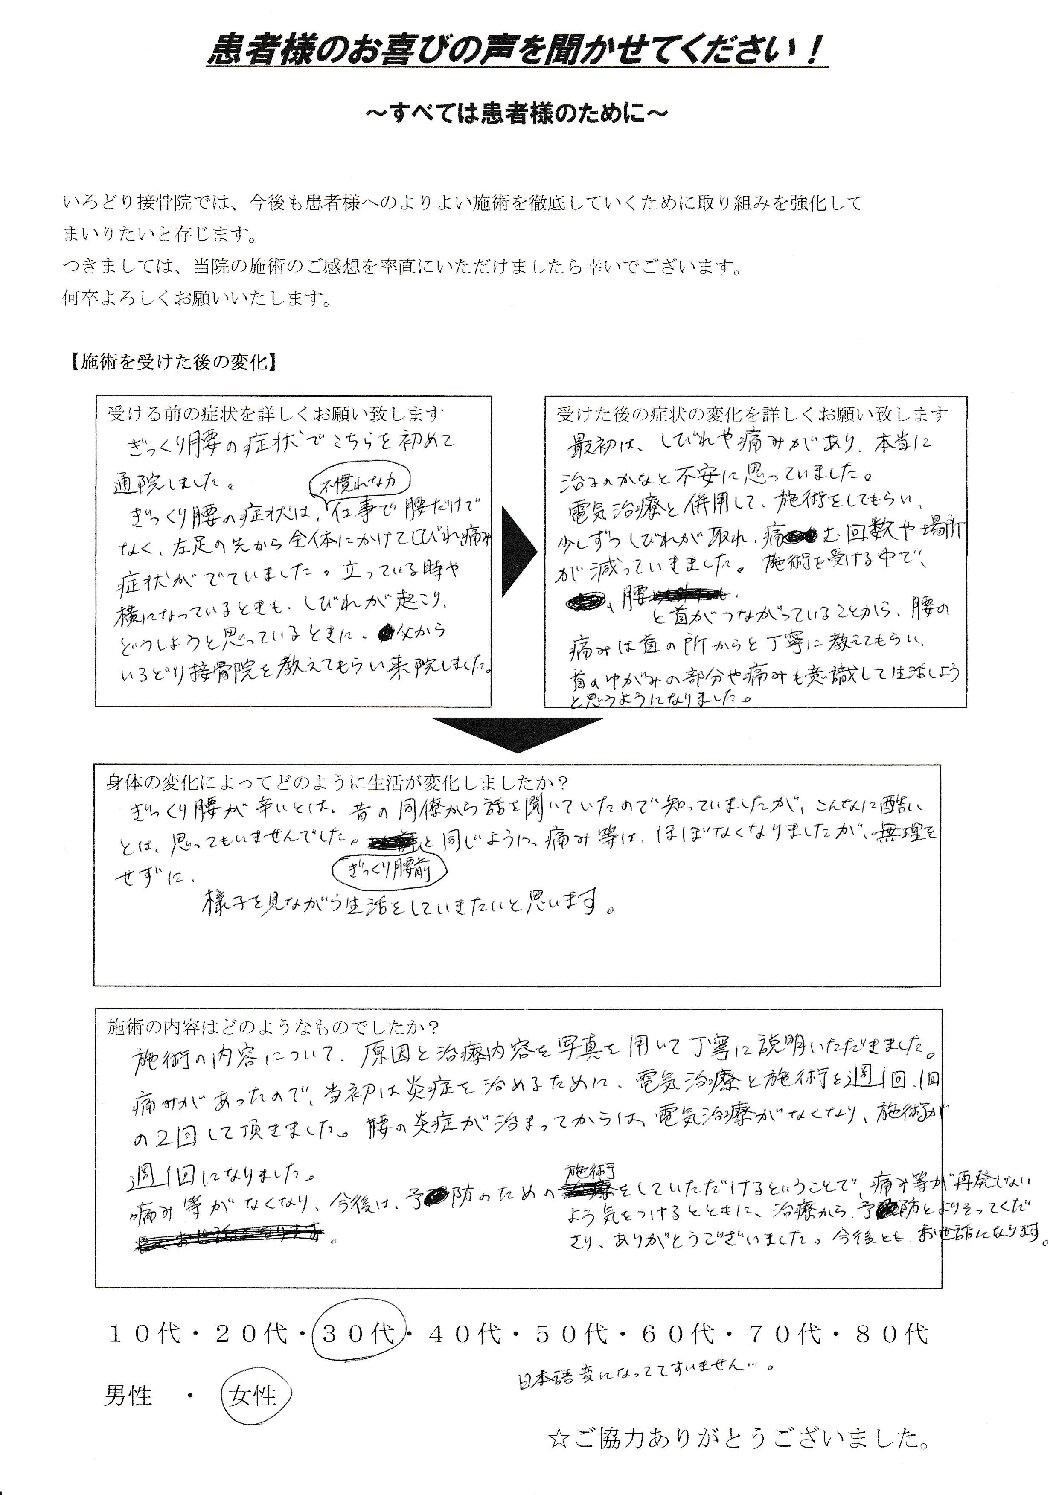 患者様のお喜びの声を聞かせてください！
～すべては患者様のために～
いろどり接骨院では、今後も患者様へのよりよい施術を徹底していくために取り組みを強化して
まいりたいと存じます。
つきましては、当院の施術のご感想を率直にいただけましたら幸いでございます。
何卒よろしくお願いいたします。
【施術を受けた後の変化】
受ける前の症状を詳しくお願い致します
ぎっくり腰の症状でこちらを初めて
通院しました。
不慣れな力
ぎっくり腰の症状は、仕事で腰だけで
なく、左足の先から全体にかけてしびれ痛み
症状がでていました。立っている時や
横になっているときも、しびれが起こり、
どうしようと思っているときに、父から
いろどり接骨院を教えてもらい来院しました。
受けた後の症状の変化を詳しくお願い致します
最初は、しびれや痛みがあり、本当に
治るのかなと不安に思っていました。
電気治療と併用して、施術をしてもらい、
少しずつしびれが取れ、痛む回数や場所
が減っていきました。施術を受ける中で、
、腰
と首がつながっていることから、腰の
痛みは首の所からと丁寧に教えてもらい、
首のゆがみの部分や痛みも意識して生活しよう
と思うようになりました。
身体の変化によってどのように生活が変化しましたか？
ぎっくり腰が辛いとは、昔の同僚から話を聞いていたので知っていましたが、こんなに酷い
とは、思ってもいませんでした。と同じように、痛み等は、ほぼなくなりましたが、無理を
せずに、
ぎっくり腰前
様子を見ながら生活をしていきたいと思います。
施術の内容はどのようなものでしたか？
施術の内容について、原因と治療内容を写真を用いて丁寧に説明いただきました。
痛みがあったので、当初は炎症を治めるために、電気治療と施術を週1回、1回
の2回して頂きました。腰の炎症が治まってからは、電気治療がなくなり、施術が
週1回になりました。
施術
痛み等がなくなり、今後は、予防のためのをしていただけるということで、痛み等が再発しない
よう気をつけるとともに、治療から、予防とよりそってくだ
さり、ありがとうございました。今後とも、お世話になります。
10代・20代・30代・40代・50代・60代・70代・80代
日本語変になっててすいません…。
男性 ・ 女性
☆ご協力ありがとうございました。